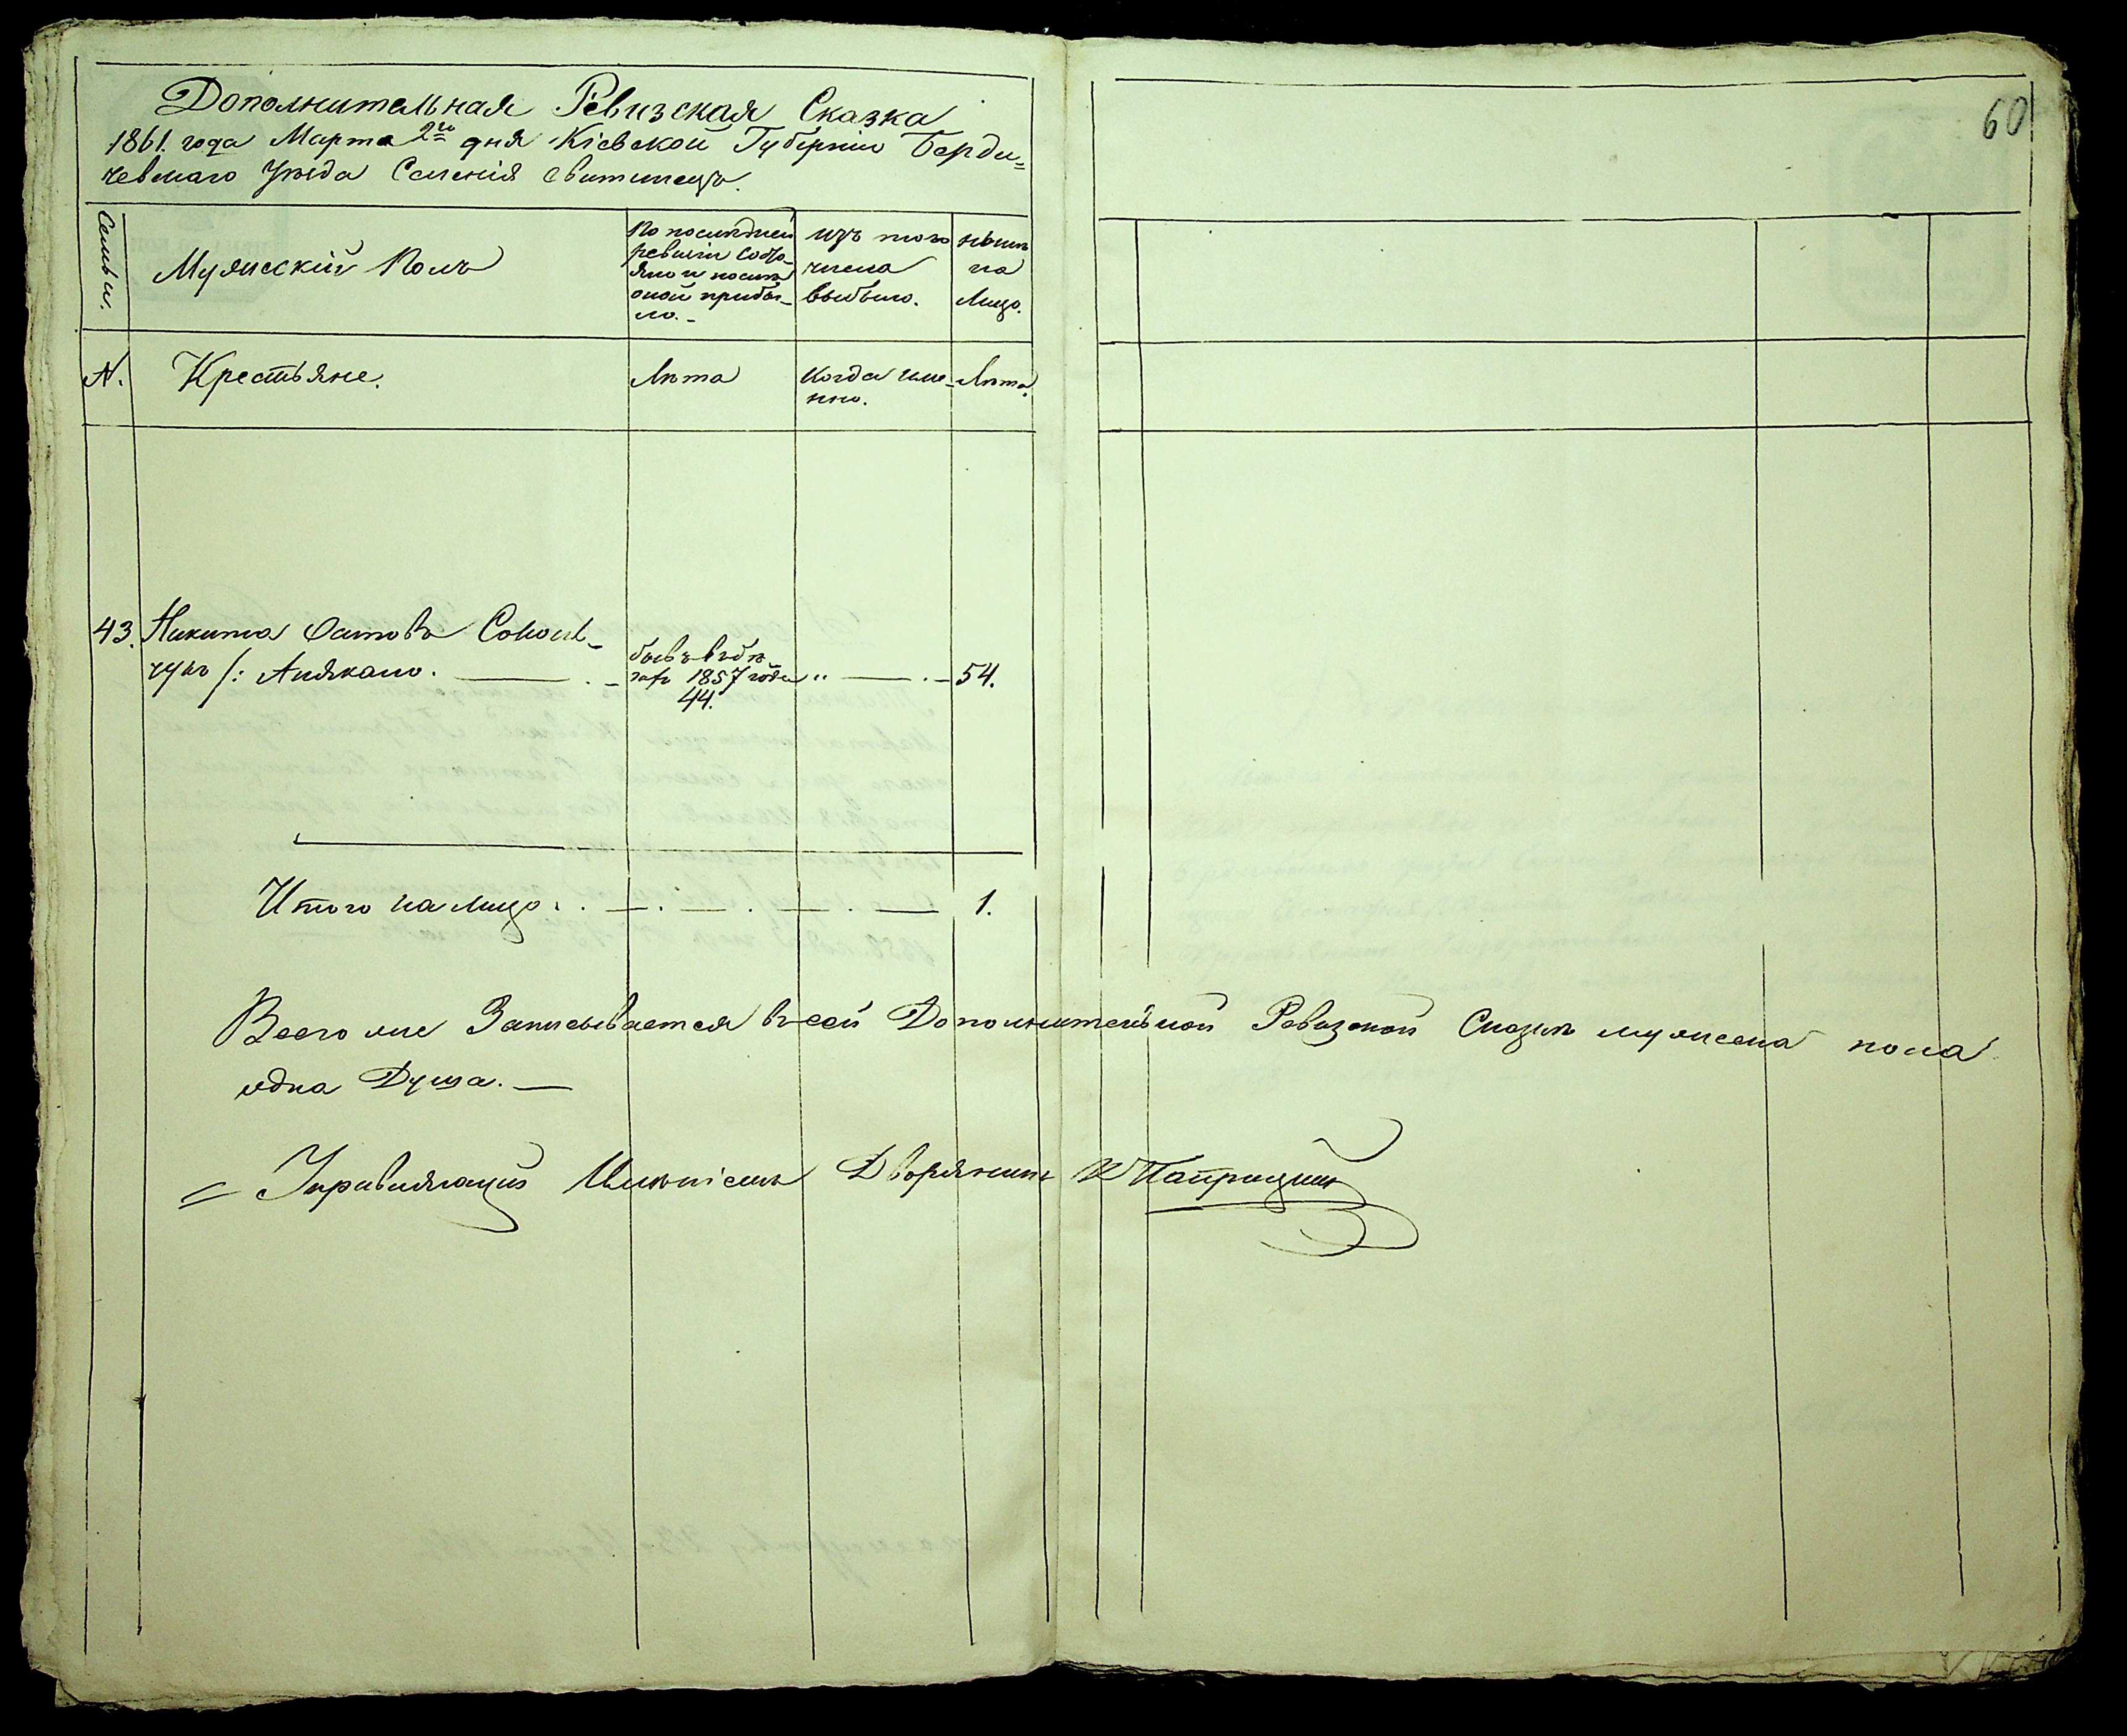 Дополнительная Ревизская Сказка
1861. года Марта 2го дня Кіевской Губерніи Берди=
чевскаго Уѣзда Селенія Свитинецъ.
60
Семьи.
Мужескій Полъ
По послѣдней
ревизіи состо-
яло и послѣ
оной прибы-
ло.-
изъ того
числа
выбыло.
нынѣ
на
Лицо.
№.
Крестьяне.
Лѣта
Когда име-
нно.
Лѣта.
43.
Никита
чукъ /:
1857 года
44.
54.
Итого на лицо
1.
Всего же Записывается въ сей Дополнительной Ревизской Сказкѣ мужеска пола
одна Душа. —
Управляющій Имѣніемъ Дворянинъ К